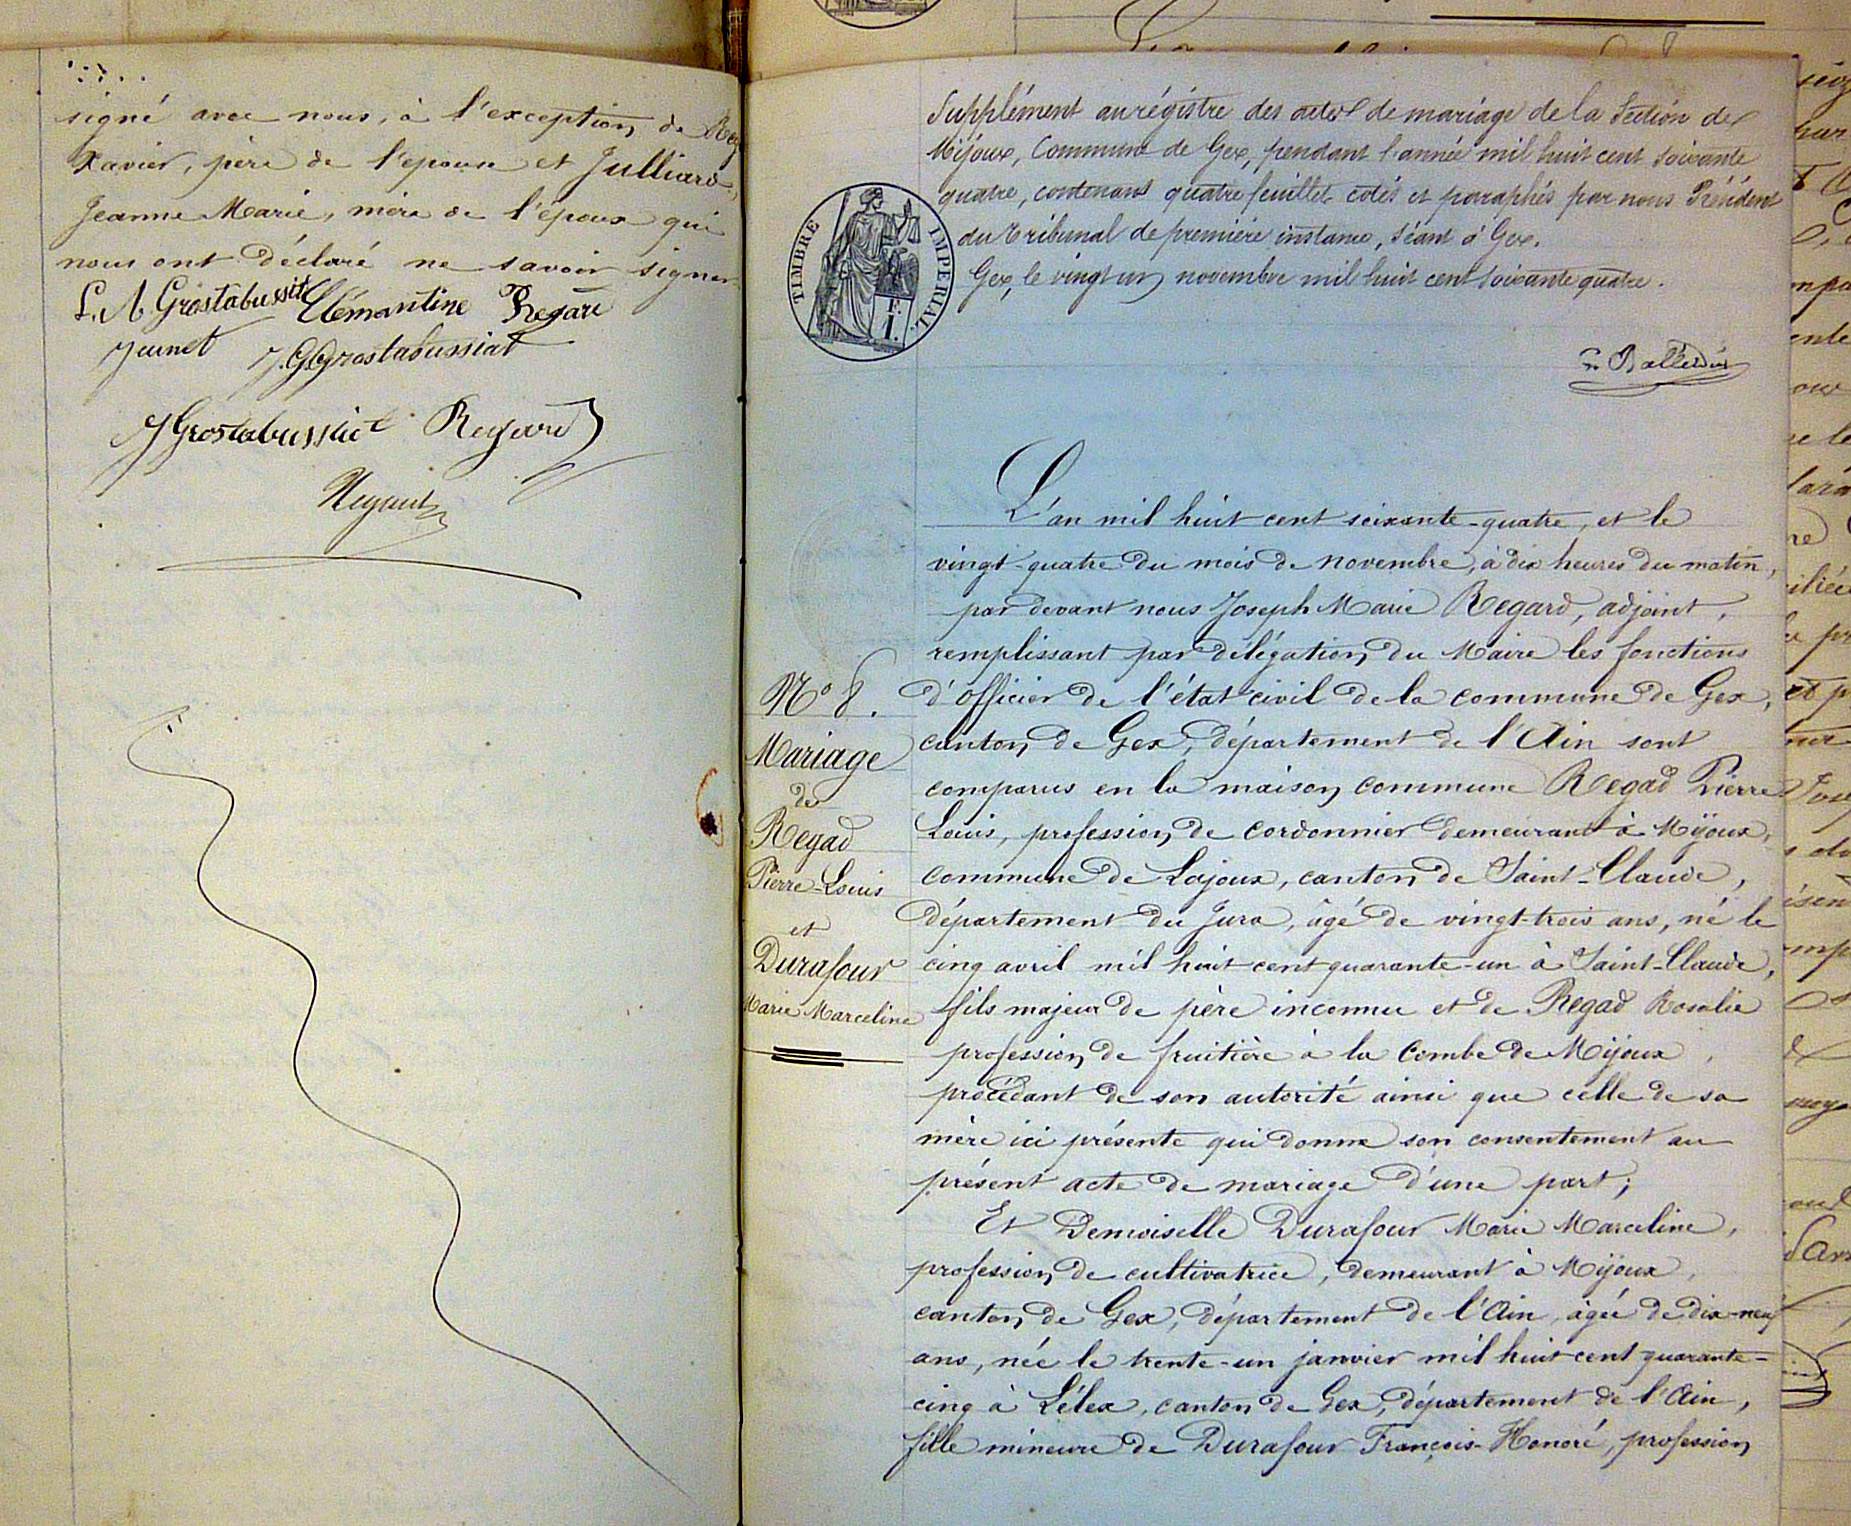 signé avec nous, à l'exception de Reg
Xavier, père de l'epouse et Julliard
Jeanne Marie, mère de l'époux qui
nous ont déclaré ne savoir signer
L. A Grostabussiat Clémantine Regard
Junet J. G Grostabussiat
J Grostabussiat Regard
Supplément au régistre des actes de mariage de la Section de
Mijoux, Commune de Gex, pendant l'année mil huit cent soixante
quatre, contenant quatre feuillets cotés et paraphés par nous Président
du Tribunal de première instance, séant à Gex.
Gex, le vingt un novembre mil huit cent soixante quatre.
TIMBRE IMPERIAL
E.
I.
L'an mil huit cent soixante-quatre, et le
vingt-quatre du mois de novembre, à dix heures du matin,
par devant nous Joseph Marie Regard, adjoint,
remplissant par délégation du Maire les fonctions
d'officier de l'état civil de la commune de Gex,
canton de Gex, département de l'Ain sont
comparus en la maison commune Regad Pierre
Louis, profession de cordonnier demeurant à Mijoux,
commune de Lajoux, canton de Saint-Claude,
département du Jura, âgé de vingt-trois ans, né le
cinq avril mil huit cent quarante-un à Saint-Claude,
fils majeur de père inconnu et de Regad Rosalie
profession de fruitière à la Combe de Mijoux,
procédant de son autorité ainsi que celle de sa
mère ici présente qui donne son consentement au
présent acte de mariage d'une part;
Et Demoiselle Durafour Marie Marceline,
profession de cultivatrice, demeurant à Mijoux,
canton de Gex, département de l'Ain, âgée de dix-neuf
ans, née le trente-un janvier mil huit cent quarante-
cinq à Lélex, canton de Gex, département de l'Ain,
fille mineure de Durafour François-Honoré, profession
N° 8.
Mariage
de
Regad
Pierre-Louis
et
Durafour
Marie Marceline